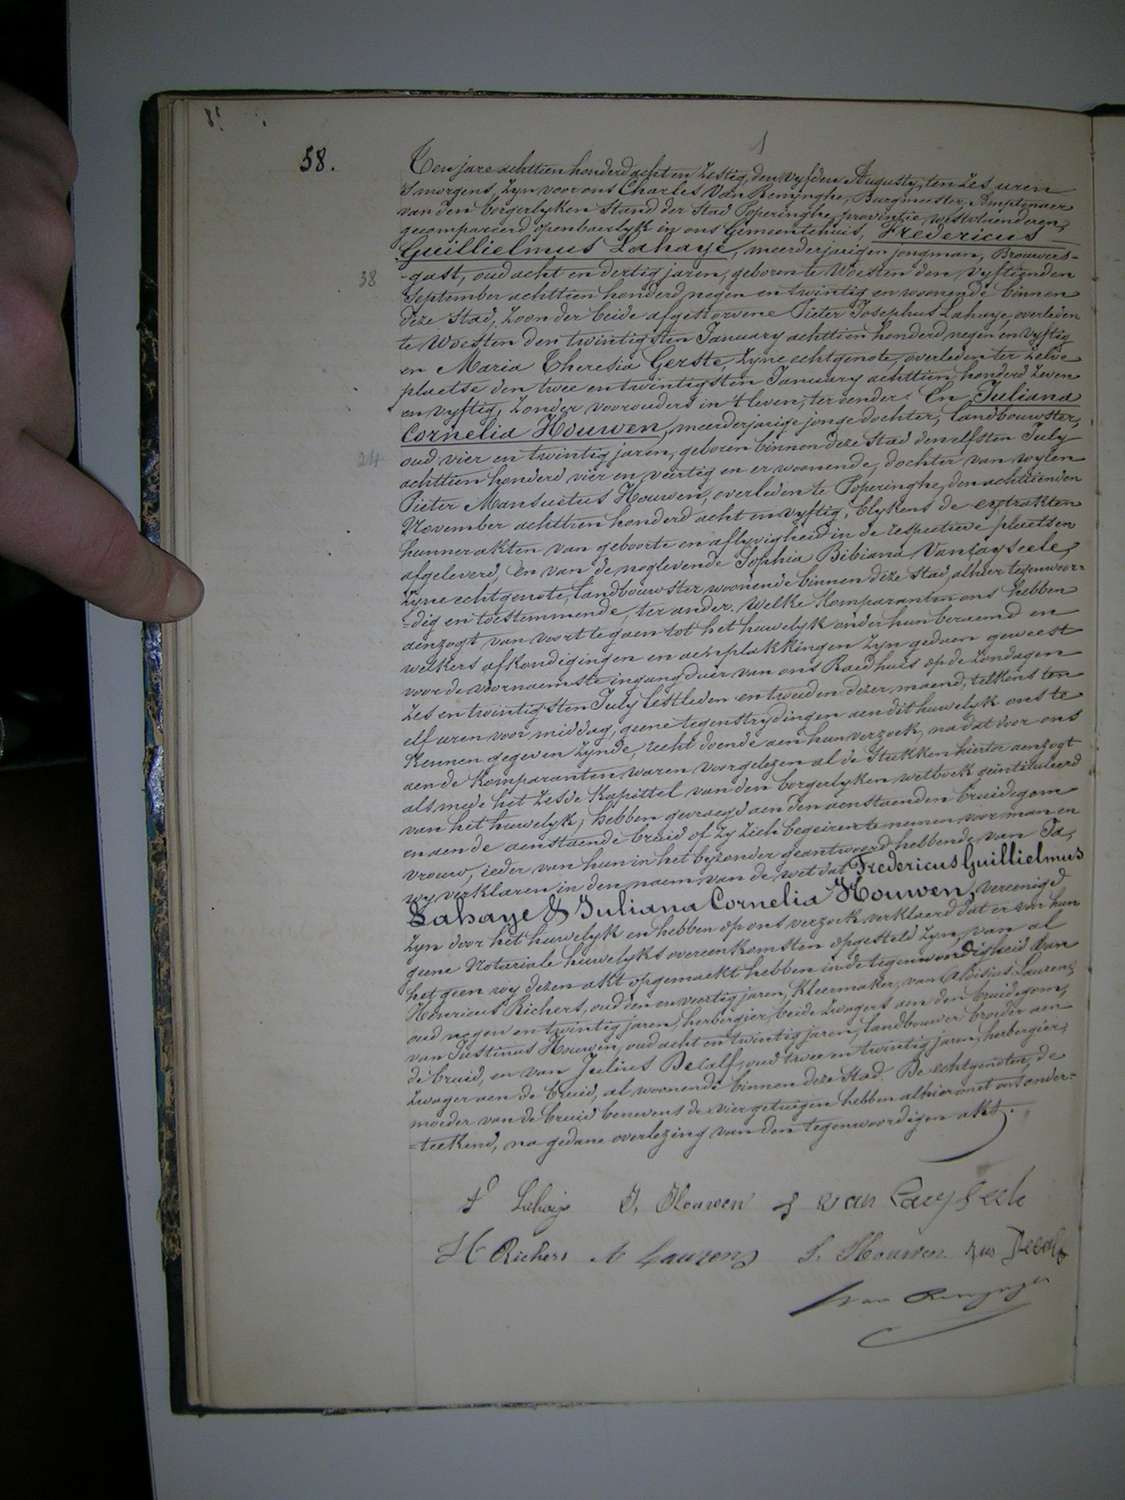 58.
Ten jare achttien honderd acht en Zestig, den vyfden Augusty, ten zes uren
's morgens, Zyn voor ons Charles Van Renynghe, Burgmeester, Amptenaer
van den borgerlyken Stand der Stad Poperinghe, provintie westvlaenderen,
gecompareerd openbaerlyk in ons Gemeentehuis, Fredericus
Guillielmus Lahaye, meerderjarigen jongman, Brouwers-
38
-gast, oud acht en dertig jaren, geboren te Woesten den vyftienden
September achttien honderd negen en twintig en woonende binnen
deze Stad, Zoon der beide afgestorvene Pieter Josephus Lahaye, overleden
te Woesten den twintigsten January achttien honderd negen en vyftig
en Maria Theresia Gerste, Zyne echtgenote, overleden ter zelve
plaetse den twee en twintigsten January achttien honderd zeven
en vyftig, Zonder voorouders in 't leven, ter eender. En Juliana
Cornelia Houwen, meerderjarige jonge dochter, landbouwster,
24
oud vier en twintig jaren, geboren binnen deze Stad den elfsten July
achttien honderd vier en veertig en er woonende, dochter van wylen
Pieter Mansuetus Houwen, overleden te Poperinghe, den achttienden
November achttien honderd acht en vyftig, blykens de extrakten
hunner akten van geboorte en aflyvigheid in de respectieve plaetsen
afgeleverd, En van de noglevende Sophia Bibiana Vancayseele,
Zyne echtgenote, landbouwster, woonende binnen deze Stad, alhier tegenwoor-
-dig en toestemmende, ter ander. Welke komparanten ons hebben
aenzogt van voort te gaen tot het huwelyk onder hun beraemd en
welkers afkondigingen en aenplakkingen Zyn gedaen geweest
voor de voornaemste ingang duer van ons Raedhuis op de Zondagen
Zes en twintigsten July lestleden en tweeden dezer maend, telkens ten
elf uren voor middag, geene tegenstrydingen aen dit huwelyk ons te
kennen gegeven zynde, recht doende aen hun verzoek, na dat door ons
aen de komparanten waren voorgelezen al de Stukken hiertoe aenzogt
alsmede het Zesde kapittel van den borgerlyken wetboek geïntituleerd
van het huwelyk, hebben gevraegd aen den aenstaenden bruidegom
en aen de aenstaende bruid of Zy Zich begeiren te nemen voor man en
vrouw, ieder van hun in het byzonder geantwoord hebbende van Ja,
wy verklaren in den naem van de wet dat Fredericus Guillielmus
Lahaye & Juliana Cornelia Houwen, vereenigd
Zyn door het huwelyk en hebben op ons verzoek verklaerd dat er van hun
geene Notariale huwelyks overeenkomsten opgesteld Zyn, van al
het geen wy dezen akt opgemaekt hebben in de tegenwoordigheid van
Henricus Richers, oud en veertig jaren, kleermaker, van Aloisius Laurens,
oud negen en twintig jaren, herbergier, beide Zwagers aen den bruidegom,
van Justinus Houwen, oud acht en twintig jaren, landbouwer broeder aen
de bruid, en van Julius Decalf, oud twee en twintig jaren, herbergier,
Zwager aen de bruid, al woonende binnen deze Stad. De echtgenoten, de
moeder van de bruid benevens de vier getuigen hebben alhier met ons onder-
-teekend, na gedane overlezing van den tegenwoordigen akt.
F Lahaye J. Houwen S van Cayseele
H Richers A Laurens J. Houwen Jus Decalf
Van Renynghe